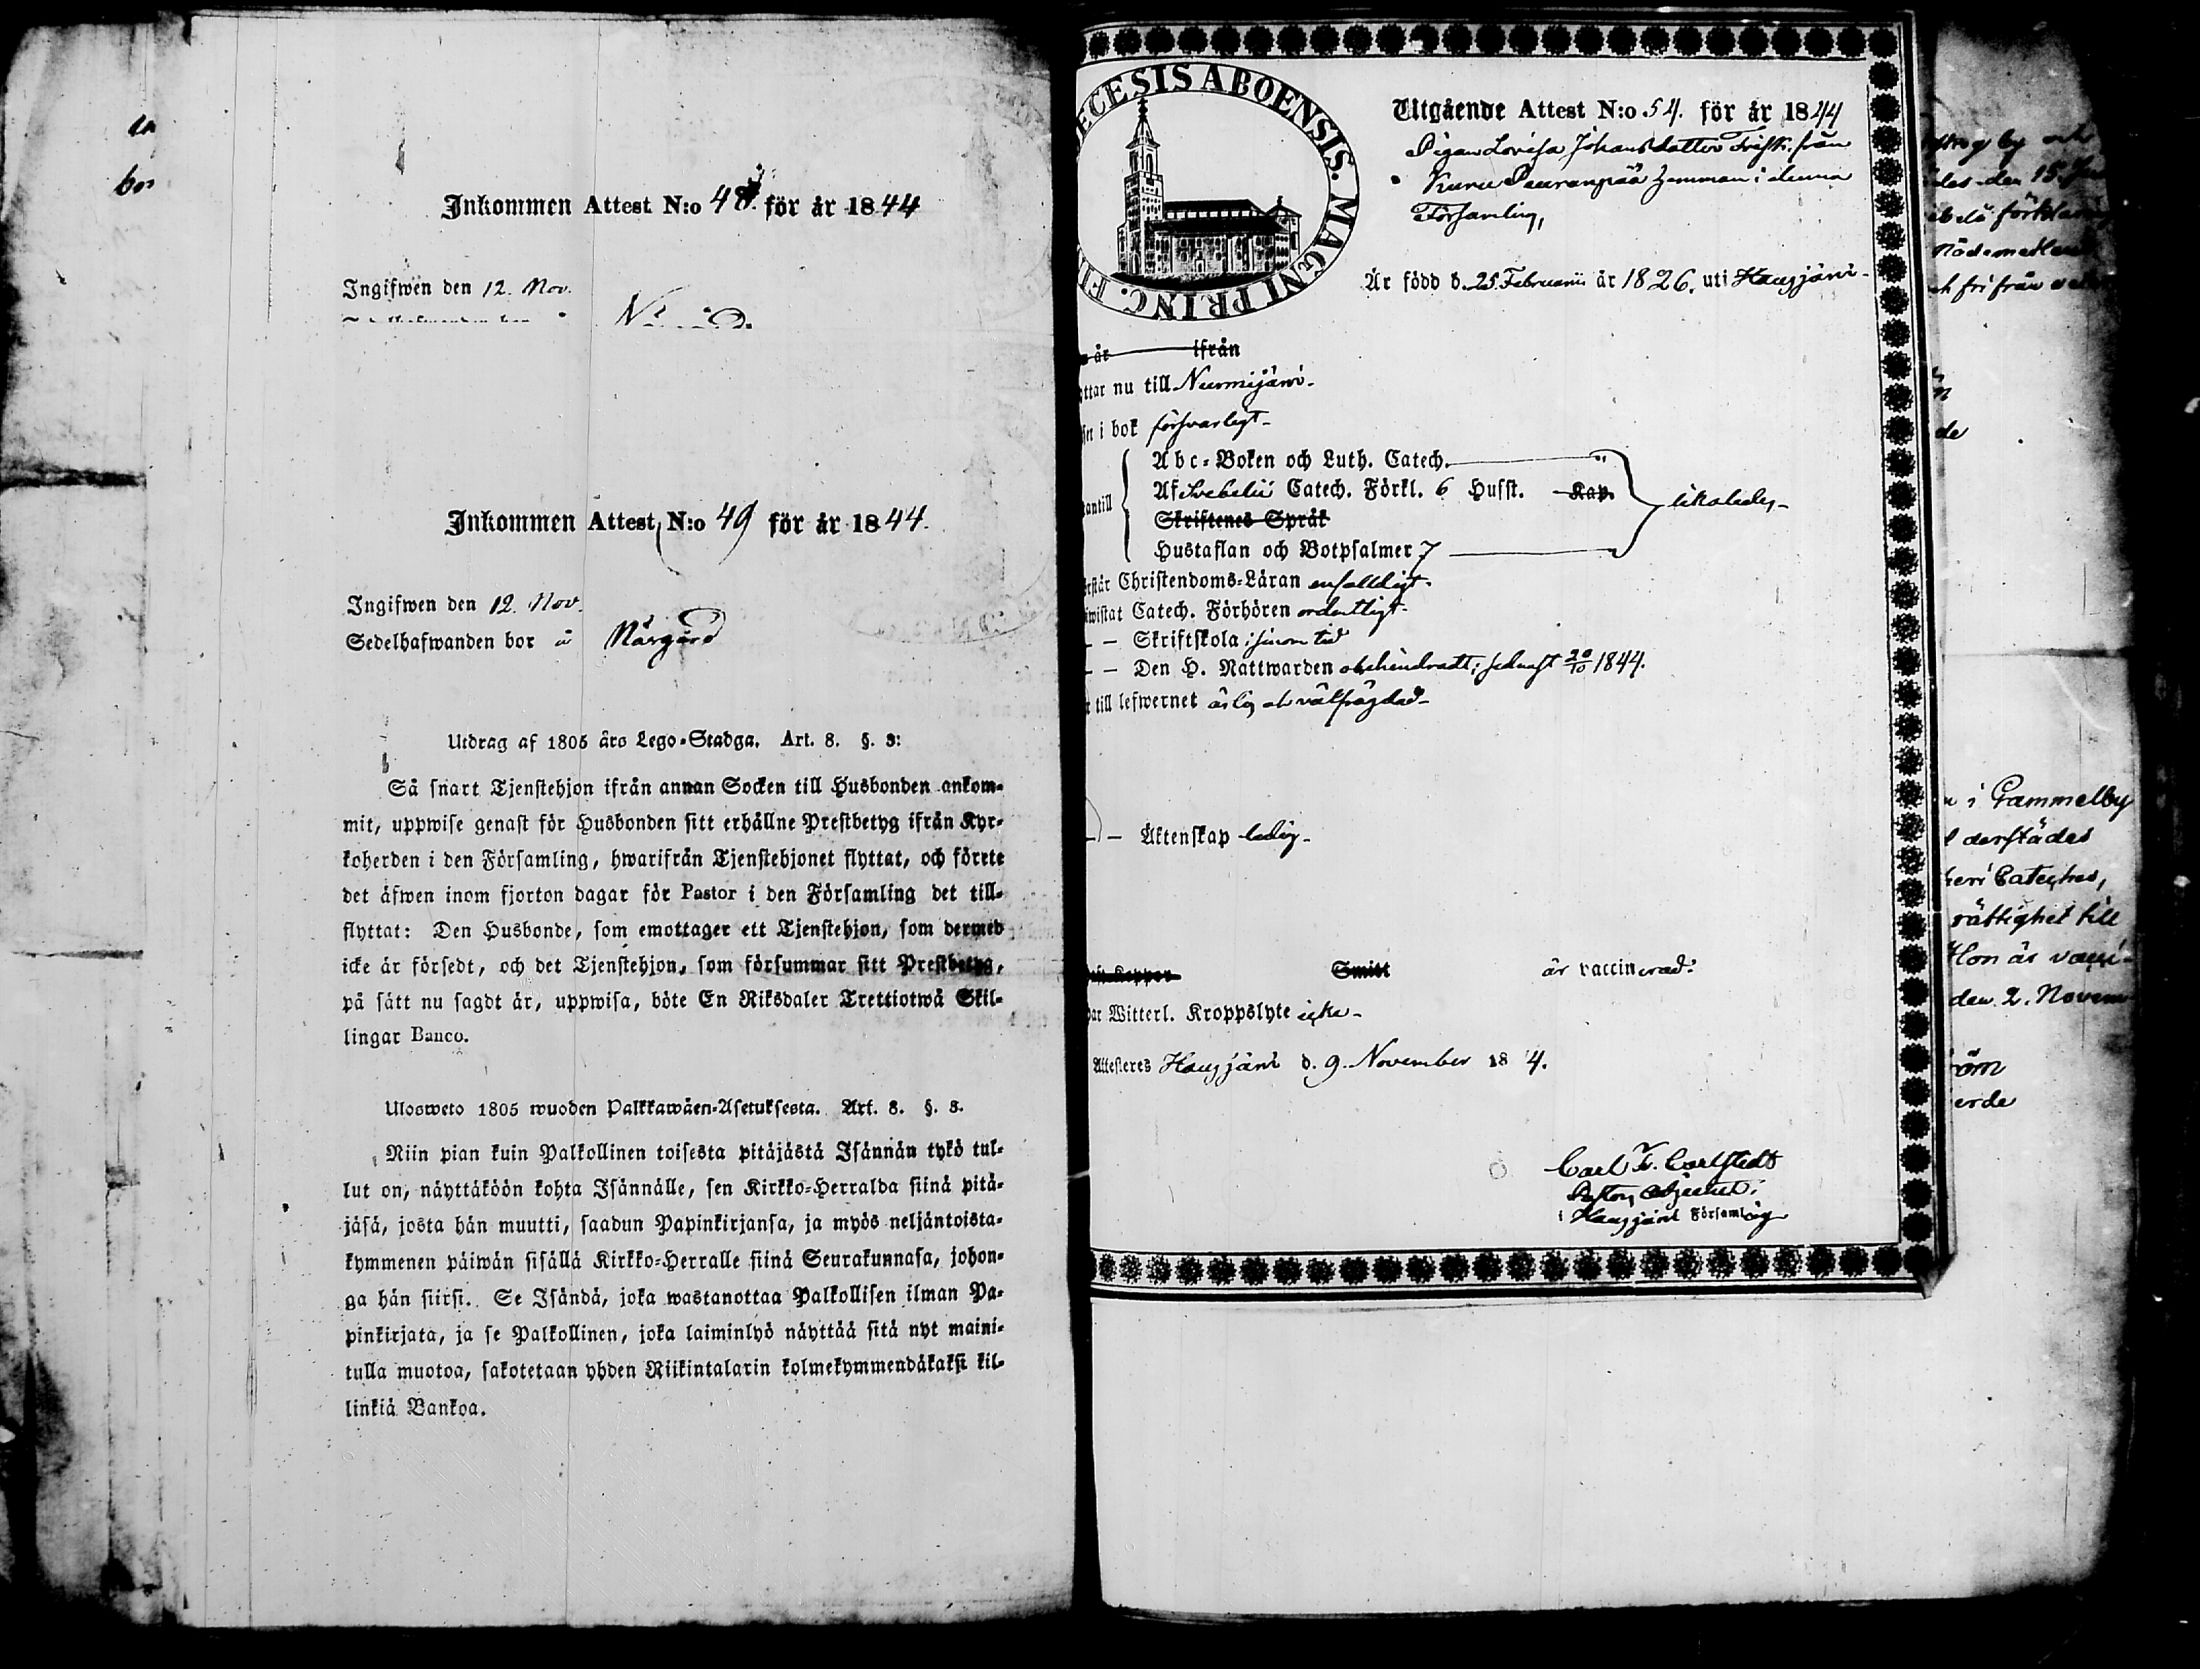 bor
Inkommen Attest N:o 48. för år 1844
Ingifwen den 12. Nov.
Inkommen Attest N:o 49 för år 1844.
Ingifwen den 12. Nov.
Sedelhafwanden bor å Nårgård
Utdrag af 1805 års Lego-Stadga. Art. 8. §. 3:
Så snart Tjenstehjon ifrån annan Socken till Husbonden ankom-
mit, uppwise genast för Husbonden sitt erhållne Prestbetyg ifrån Kyr-
koherden i den Församling, hwarifrån Tjenstehjonet flyttat, och förete
det äfwen inom fjorton dagar för Pastor i den Församling det till-
flyttat: Den Husbonde, som emottager ett Tjenstehjon, som dermed
icke är försedt, och det Tjenstehjon, som försummar sitt Prestbetyg,
på sätt nu sagdt är, uppwisa, böte En Riksdaler Trettiotwå Skil-
lingar Banco.
Ulosweto 1805 wuoden Palkkawäen-Asetuksesta. Art. 8. §. 3.
Niin pian kuin Palkollinen toisesta pitäjästä Isännän tykö tul-
lut on, näyttäköön kohta Isännälle, sen Kirkko-Herralda siinä pitä-
jäsä, josta hän muutti, saadun Papinkirjansa, ja myös neljäntoista-
kymmenen päiwän sisällä Kirkko-Herralle siinä Seurakunnasa, johon-
ga hän siirsi. Se Isändä, joka wastanottaa Palkollisen ilman Pa-
pinkirjata, ja se Palkollinen, joka laiminlyö näyttää sitä nyt maini-
tulla muotoa, sakotetaan yhden Riikintalarin kolmekymmendäkaksi kil-
linkiä Bankoa.
ECESIS ABOENSIS. MAGNI PRINC. FI
Utgående Attest N:o 54. för år 1844
Pigan Lovisa Johansdotter från
Kuru Pauranpää hemman i denna
Församling,
Är född d. 25. Februarii år 1826. uti Hausjärvi
år ifrån
ttar nu till Nurmijärvi
i bok försvarligt
Abc-Boken och Luth. Catech.
Af Svebelii Catech. Förkl. 6 Hufst. Kap.
antill
likaledes
Skriftenes Språk
Hustaflan och Botpsalmer 7
rstår Christendoms-Läran enfaldigt
wistat Catech. Förhören ordentligt
— — Skriftskola i sinom tid
— — Den H. Nattwarden obehindradt; sednast 20/10 1844.
till lefwernet ärlig och välfrägdad
— Äktenskap ledig
Koppor Smitt är vaccinerad:
ar Witterl. Kroppslyte icke
Attesteres Hausjärvi d. 9. November 18 4.
Carl F. Carlstedt
Pastors Adjunct
i Hausjärvi Församling
by och
des den 15.
förklaring
fri från
de
i Gammelby
derstädes
Cateches,
rättighet till
Hon är vacci-
den 2. Novem
erde